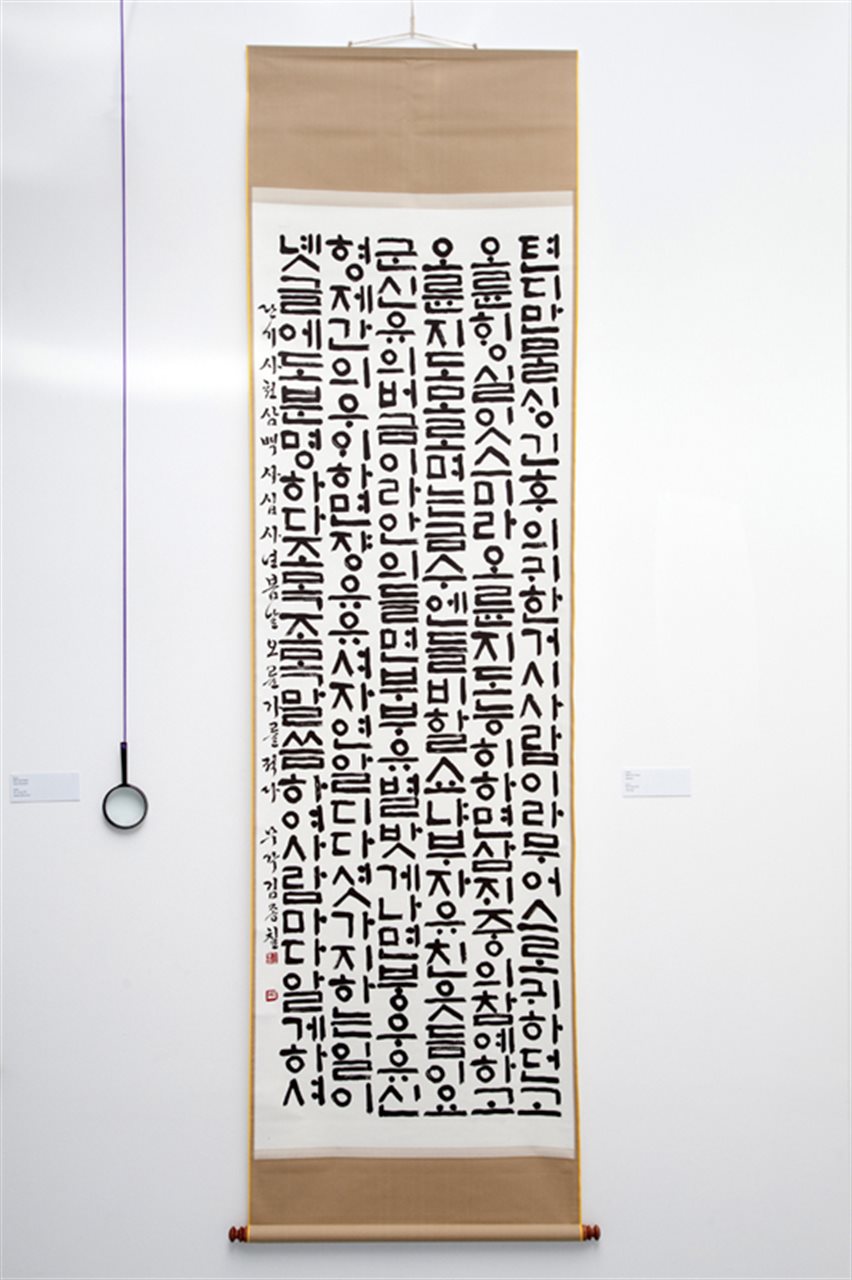 텬디만물ᄉᆡᆼ긴후의귀한거시사람이라무어스로귀하던고
오륜ᄒᆡᆼ실잇스미라오륜지도능히하면삼ᄌᆡ중의참예하고
오륜지도모로면는금수엔들비할쇼냐부자유친읏듬이요
군신유의버금이라안의들면부부유별밧게나면붕우유신
형제간의우이하면쟝유유셔자연알디다셧가지하는일이
녯글에도분명하다조목조목말씀ᄒᆞ여사람마다알게ᄒᆞ셔
단기사천삼백사십사년봄날오륜가를적다 무각김종칠